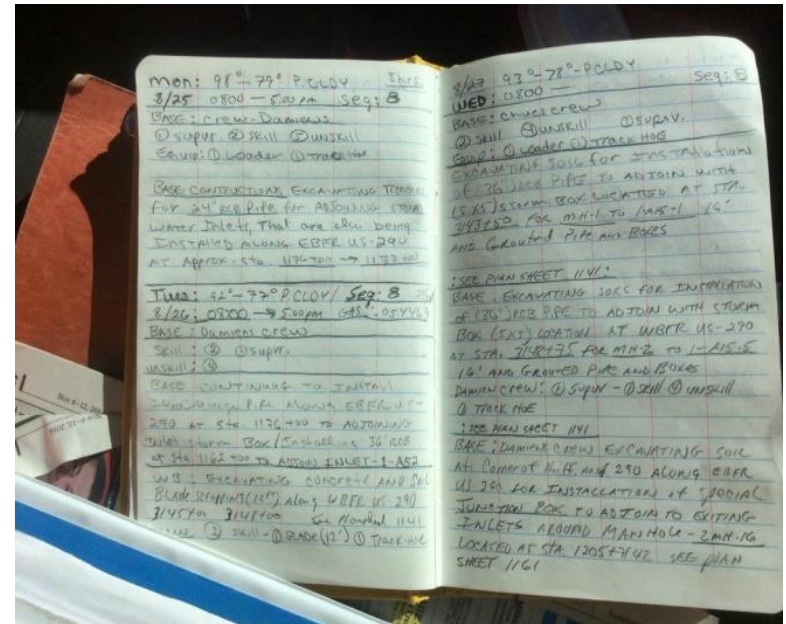 Mon: 98°-79° P.CLDY 8hrs.
8/25 0800 — 5:00 pm Seq: 8
BASE: crew-Damiens
① supvr. ② skill ⑤ unskill
Equip: ① Loader ① Track Hoe
BASE CONTINUTIONS EXCAVATING Trenches
for 24" RCB Pipe for ADJOINING STORM
WATER Inlets, That are also being
INSTALLED ALONG EBFR US-290
AT Approx. sta. 1176+00 → 1177+00
Tues: 92°-77° P.CLDY/ Seq: 8
8/26: 0800 → 5:00pm
BASE: Damiens crew
Skill: ② ① supvr.
unskill: ④
BASE CONTINUING TO INSTALL
Pipe Along EBFR US-
290 at sta 1176+00 to ADJOINING
Inlet storm Box/Installing 36" RCB
at sta 1162+00 to ADJOIN INLET-1-A52
WB: EXCAVATING concrete AND Soil
BLADE scrapping (12FT) Along WBFR US-290
3145+00 3148+00 1141
② skill - ① BLADE (12') ① Track-Hoe
Nov 6-12, 201
8/27 93°-78°-P.CLDY
WED: 0800 — Seq: 8
BASE: crew
② skill ④ unskill ① SUPVR.
Equip: ① Loader ① Track HOE
EXCAVATING SOIL for INSTALLATION
of (36") RCB PIPE TO ADJOIN WITH
(5X5) STORM BOX LOCATED AT STA.
3143+50 FOR MH-1 TO 1-A15-1 16'
AND Grouted Pipe AND BOXES
: SEE PLAN SHEET 1141:
BASE: EXCAVATING SOILS FOR INSTALLATION
of (36") RCB PIPE TO ADJOIN WITH STORM
BOX (5X5) LOCATION AT WBFR US-290
AT STA. 3148+75 FOR MH-2 TO 1-A15-5
16' AND GROUTED PIPE AND BOXES
DAMIEN crew: ① SUPVR - ② skill ④ unskill
① TRACK HOE
: SEE PLAN SHEET 1141
BASE: DAMIENS CREW EXCAVATING SOIL
At Corner of Huff and 290 ALONG EBFR
US 290 FOR INSTALLATION of SPECIAL
JUNCTION BOX TO ADJOIN TO EXITING
INLETS AROUND MANHOLE-2MH-16
LOCATED AT STA 1205+71.42 SEE PLAN
SHEET 1161